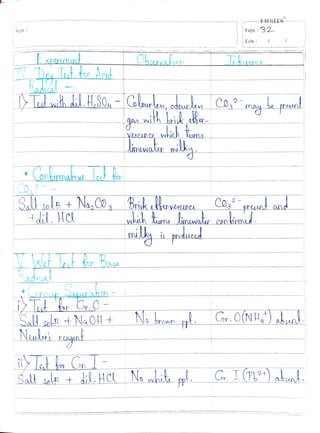 PIONEER
Page: 92
Date: / /
Experiment Observation Inference
IV Dry Test for Acid
Radical -
i> Test with dil. H₂SO₄ - Colourless, odourless CO₃²⁻ may be present
gas with brisk effer-
vescence which turns
limewater milky.
• Confirmative Test for
CO₃²⁻ -
Salt solⁿ + Na₂CO₃ Brisk effervescence CO₃²⁻ present and
+ dil. HCl which turns limewater confirmed.
milky is produced
V Wet Test for Base
Radical
• Group Separation -
i> Test for Gr. O -
Salt solⁿ + NaOH + No brown ppt. Gr. O (NH₄⁺) absent.
Nessler's reagent
ii> Test for Gr. I -
Salt solⁿ + dil. HCl No white ppt. Gr. I (Pb²⁺) absent.